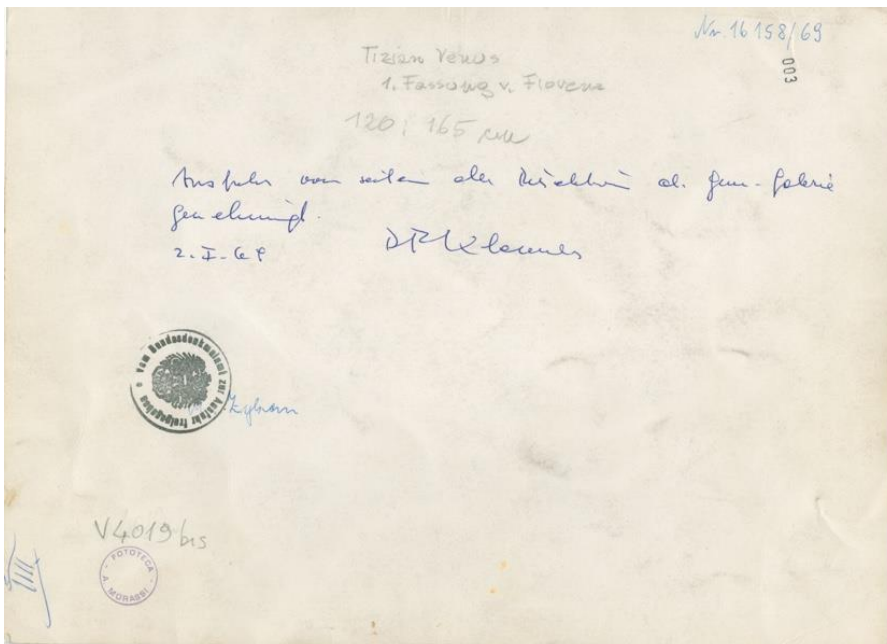 Nr. 16 158/69
003
Tizian Venus
1. Fassung v. Florenz
120 : 165 cm
Ausfuhr von seiten der Direktion d. Gem-Galerie
genehmigt.
2. I. 69
Vom Bundesdenkmalamt zur Ausfuhr freigegeben
V4019 bis
FOTOTECA
A. MORASSI